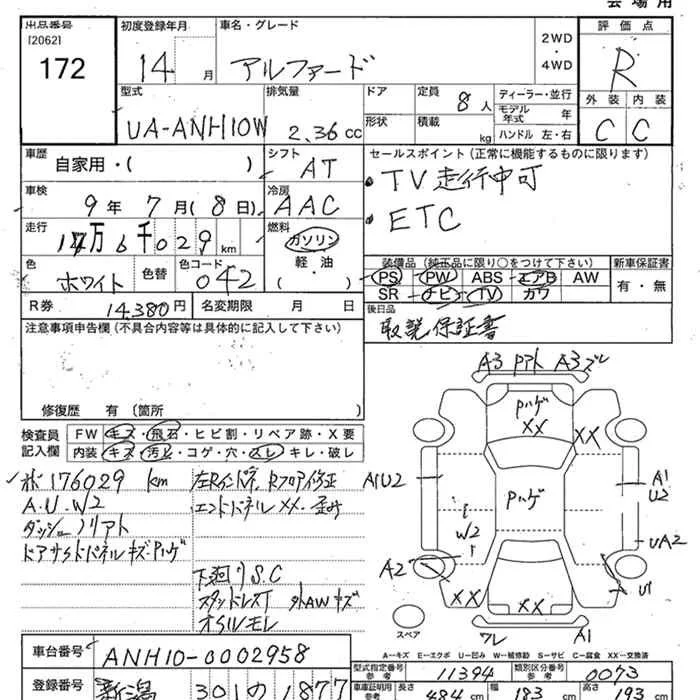 会場用
出品番号
[2062]
172
初度登録年月
14月
車名・グレード
アルファード
2WD
・
4WD
評価点
R
外装 内装
C C
型式
UA-ANH10W
排気量
2.36cc
ドア
形状
定員 8人
積載 kg
ディーラー・並行
モデル年式 年
ハンドル 左・右
車歴
自家用・( )
シフト
AT
セールスポイント(正常に機能するものに限ります)
・TV走行中可
・ETC
車検
9年 7月(8日)
冷房
AAC
走行
17万6千029km
燃料
ガソリン
軽・油
( )
色
ホワイト
色替
色コード
042
装備品(純正品に限り○をつけて下さい)
PS PW ABS エアB AW
SR ナビ TV カワ
新車保証書
有・無
R券 14,380円
名変期限 月 日
後日品
取説 保証書
注意事項申告欄(不具合内容等は具体的に記入して下さい)
修復歴 有(箇所
検査員
記入欄
FW キズ・飛石・ヒビ割・リペア跡・X要
内装 キズ・汚ヒ・コゲ・穴・スレ・キレ・破レ
176029 km
A.U.W2
左Rインドパネ、Rフロア修正
エンドパネル XX・歪み
下廻りS.C
外AWキズ
オイルモレ
A3 A3
Pハゲ
XX
XX
Pハゲ
A1U2
A1
U2
W2
UA2
A2
U1
XX
XX
ワレ A1
スペア
A=キズ E=エクボ U=凹み W=補修跡 S=サビ C=腐食 XX=交換済
車台番号
ANH10-0002958
型式指定番号
参考
11394
類別区分番号
参考
0073
登録番号
新潟 301 の 1877
車庫証明用
参考
長さ 484cm
幅 183cm
高さ 193cm